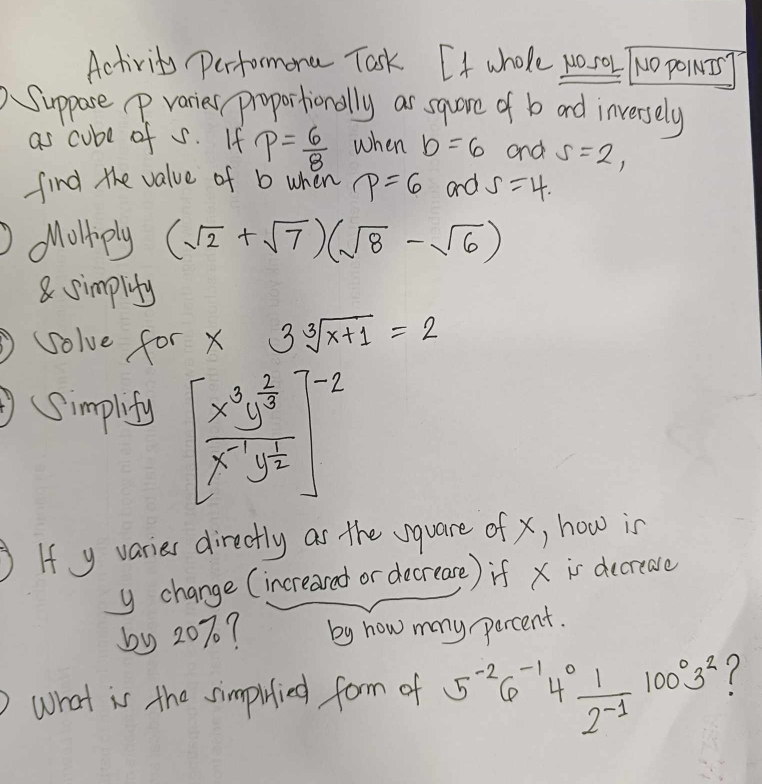 Activity Performance Task [1 whole NO SOL NO POINTS]
Suppose p varies proportionally as square of b and inversely
as cube of s. If p = 6/8 when b = 6 and s = 2,
find the value of b when p = 6 and s = 4.
Multiply (√2 + √7)(√8 - √6)
& simplify
Solve for x 3 ∛(x+1) = 2
Simplify [x³y^(2/3) / x^(-1)y^(1/2)]^(-2)
If y varies directly as the square of x, how is
y change (increased or decrease) if x is decrease
by 20%? by how many percent.
What is the simplified form of 5^(-2) 6^(-1) 4^0 1/2^(-1) 100^0 3^2?